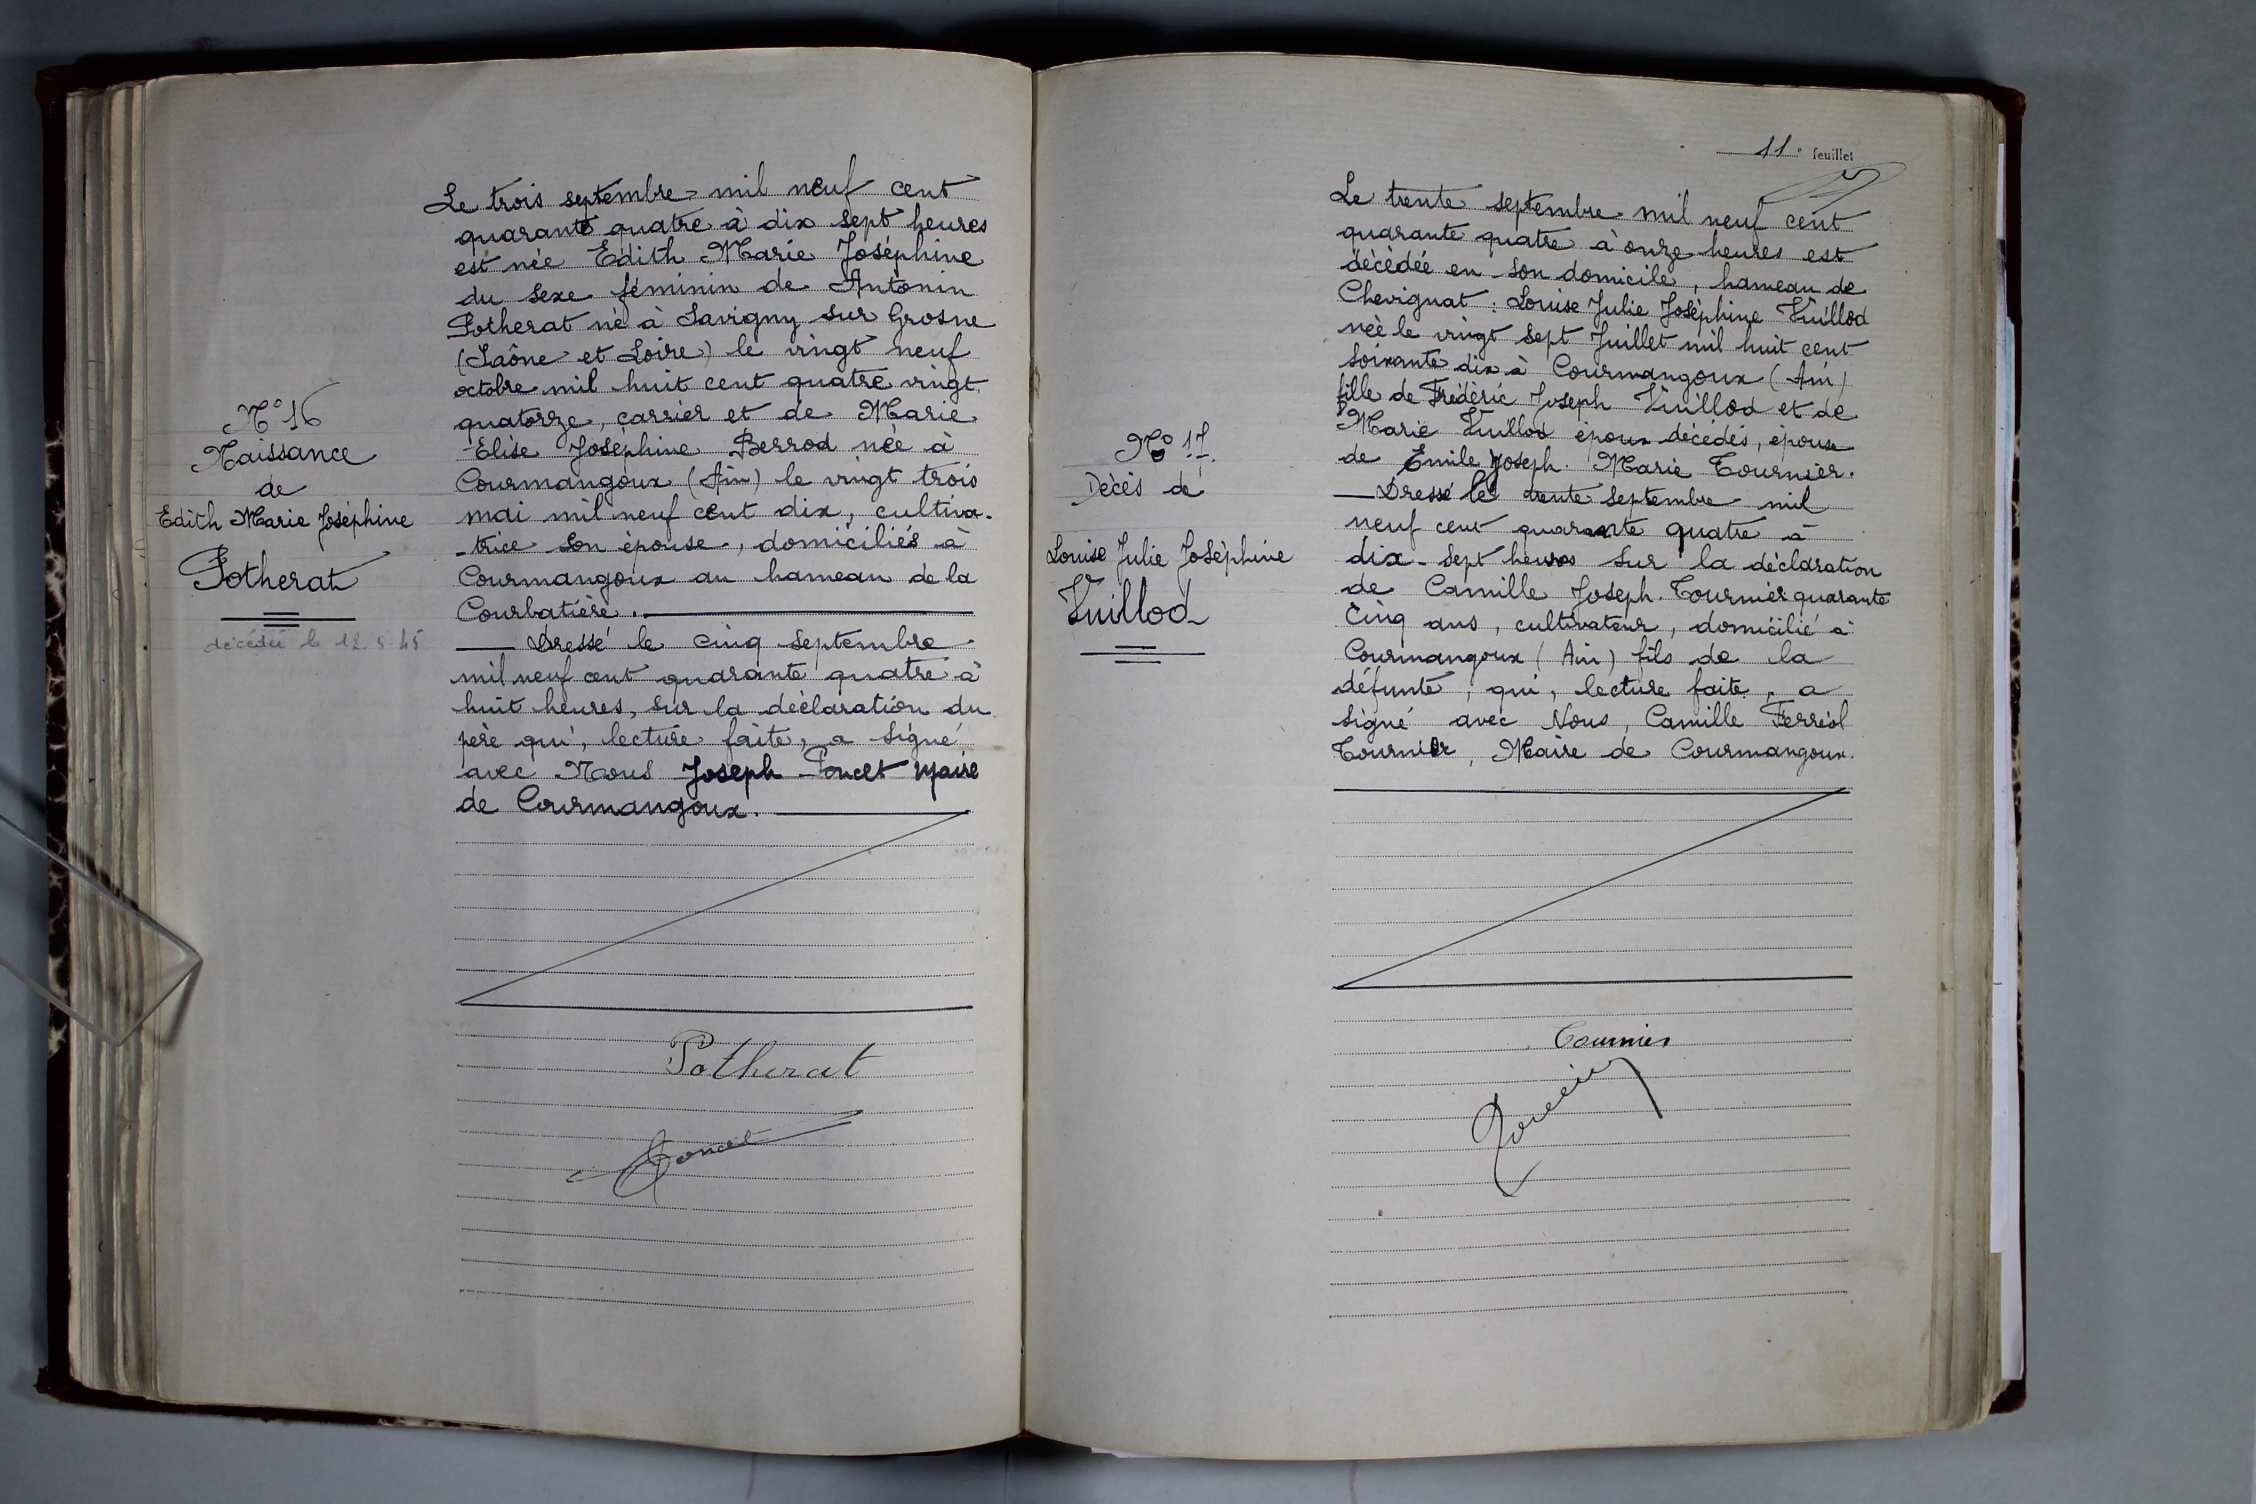 N° 16
Naissance
de
Edith Marie Joséphine
Potherat
décédée le 12.5.45
Le trois septembre mil neuf cent
quarante quatre à dix sept heures
est née Edith Marie Joséphine
du sexe féminin de Antonin
Potherat né à Savigny sur Grosne
(Saône et Loire) le vingt neuf
octobre mil huit cent quatre vingt
quatorze, carrier et de Marie
Elise Joséphine Berrod née à
Courmangoux (Ain) le vingt trois
mai mil neuf cent dix, cultiva-
-trice son épouse, domiciliés à
Courmangoux au hameau de la
Courbatière.
Dressé le cinq septembre
mil neuf cent quarante quatre à
huit heures, sur la déclaration du
père qui, lecture faite, a signé
avec Nous Joseph Poncet Maire
de Courmangoux.
Potherat
Poncet
11e feuillet
N° 17.
Décès de
Louise Julie Joséphine
Vuillod
Le trente septembre mil neuf cent
quarante quatre à onze heures est
décédée en son domicile, hameau de
Chevignat : Louise Julie Joséphine Vuillod
née le vingt sept Juillet mil huit cent
soixante dix à Courmangoux (Ain)
fille de Frédéric Joseph Vuillod et de
Marie Vuillod époux décédés, épouse
de Emile Joseph Marie Tournier.
Dressé le trente septembre mil
neuf cent quarante quatre à
dix-sept heures sur la déclaration
de Camille Joseph Tournier quarante
cinq ans, cultivateur, domicilié à
Courmangoux (Ain) fils de la
défunte, qui, lecture faite, a
signé avec Nous, Camille Ferréol
Tournier, Maire de Courmangoux.
Tournier